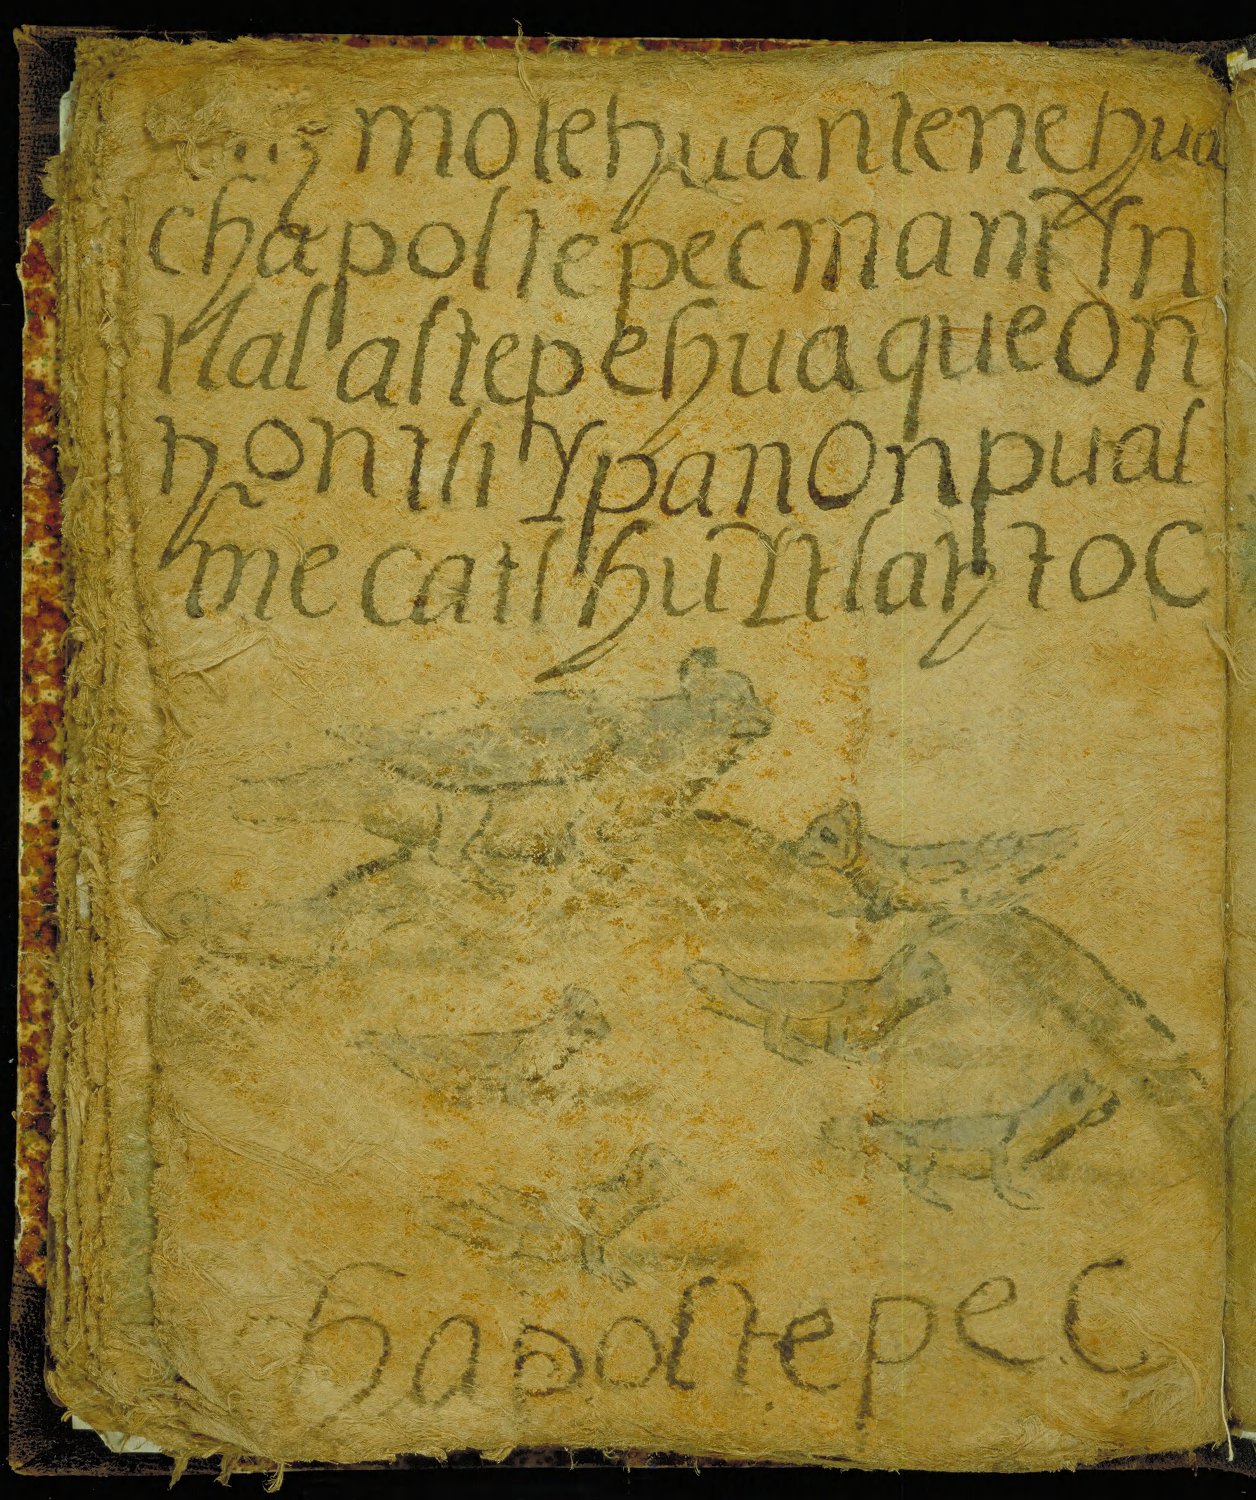 motehuantenehua
chapoltepecmaniYn
ytlal altepehuaqueOn
honitiYpanOnpual
m̃ecatlhuitztlahtoc
hapoltepec